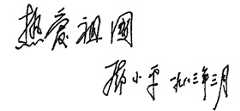 热爱祖国
邓小平 一九八三年三月